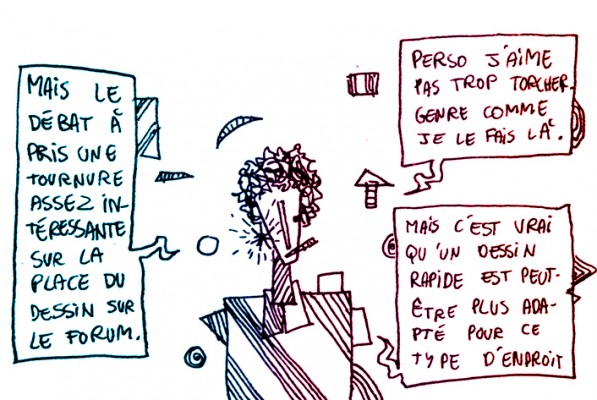 MAIS LE
DÉBAT À
PRIS UNE
TOURNURE
ASSEZ IN-
TÉRESSANTE
SUR LA
PLACE DU
DESSIN SUR
LE FORUM.
PERSO J'AIME
PAS TROP TORCHER.
GENRE COMME
JE LE FAIS LÀ.
MAIS C'EST VRAI
QU'UN DESSIN
RAPIDE EST PEUT-
ÊTRE PLUS ADA-
PTÉ POUR CE
TYPE D'ENDROIT